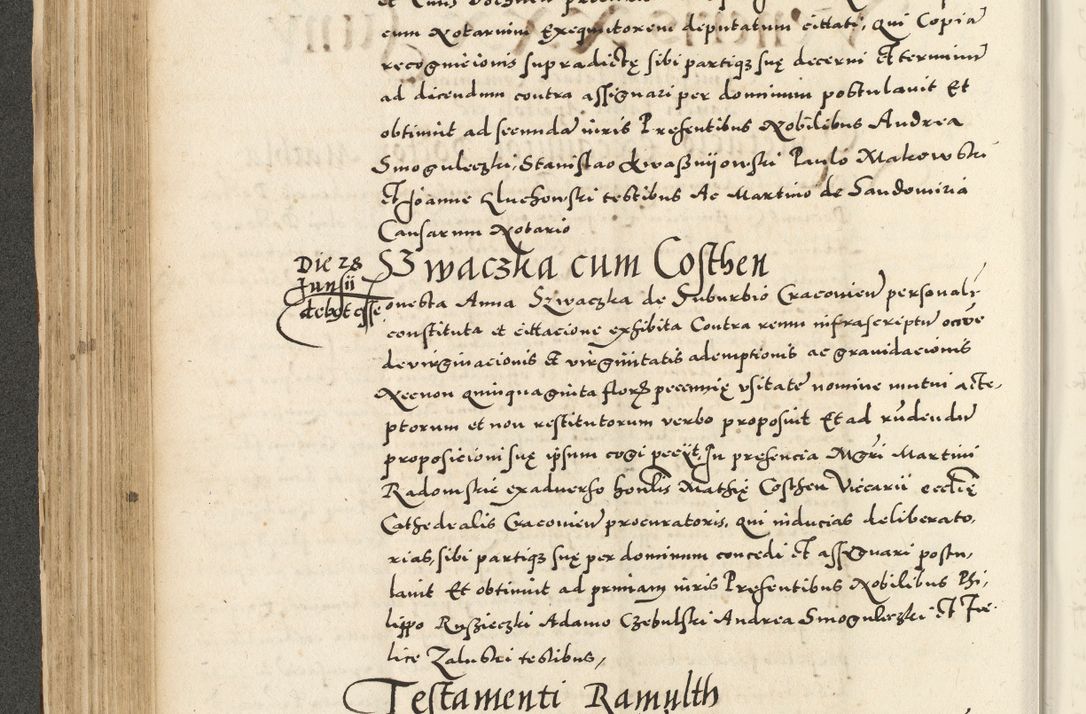 eum Notarium Exequutorem deputatum cittati, Qui Copiã
recognicionis supradictę sibi partiqʒ suę decerni Et terminũ
ad dicendum contra assignari per dominum postulavit Et
obtinuit ad secundã iuris Presentibus Nobilibus Andrea
Smoguleczki, Stanislao Paulo Makowski
Et Joanne Kluchowski testibus Ac Martino de Sandomiria
Causarum Notario
Die 28
Junii
debet esse
Szwaczka cum Costhen
Honesta Anna Szwaczka de Suburbio Cracovieñ personalr
constituta et cittacione exhibita Contra reum infrascriptũ
devirginacionis Et virginitatis ademptionis ac gravidacionis
Necnon quinquaginta florʒ pecunię usitatę nomine mutui acce-
ptorum et non restitutorum verbo proposuit Et ad rñdendũ
proposicioni suę ipsum cogi peciit, In presencia Mgri Martini
Radomskie exadverso honlis Mathię Costhen Viccarii ecclię
Cathedralis Cracovieñ procuratoris, qui inducias deliberato,
rias, sibi partiqʒ suę per dominum concedi Et assignari postu,
lavit Et obtinuit ad primam iuris Presentibus Nobilibus Phi,
lippo Ruszieczki Adamo Czebulski Andrea Smoguleczki Et Fe-
lice Zaluski testibus,
Testamenti Ramulth